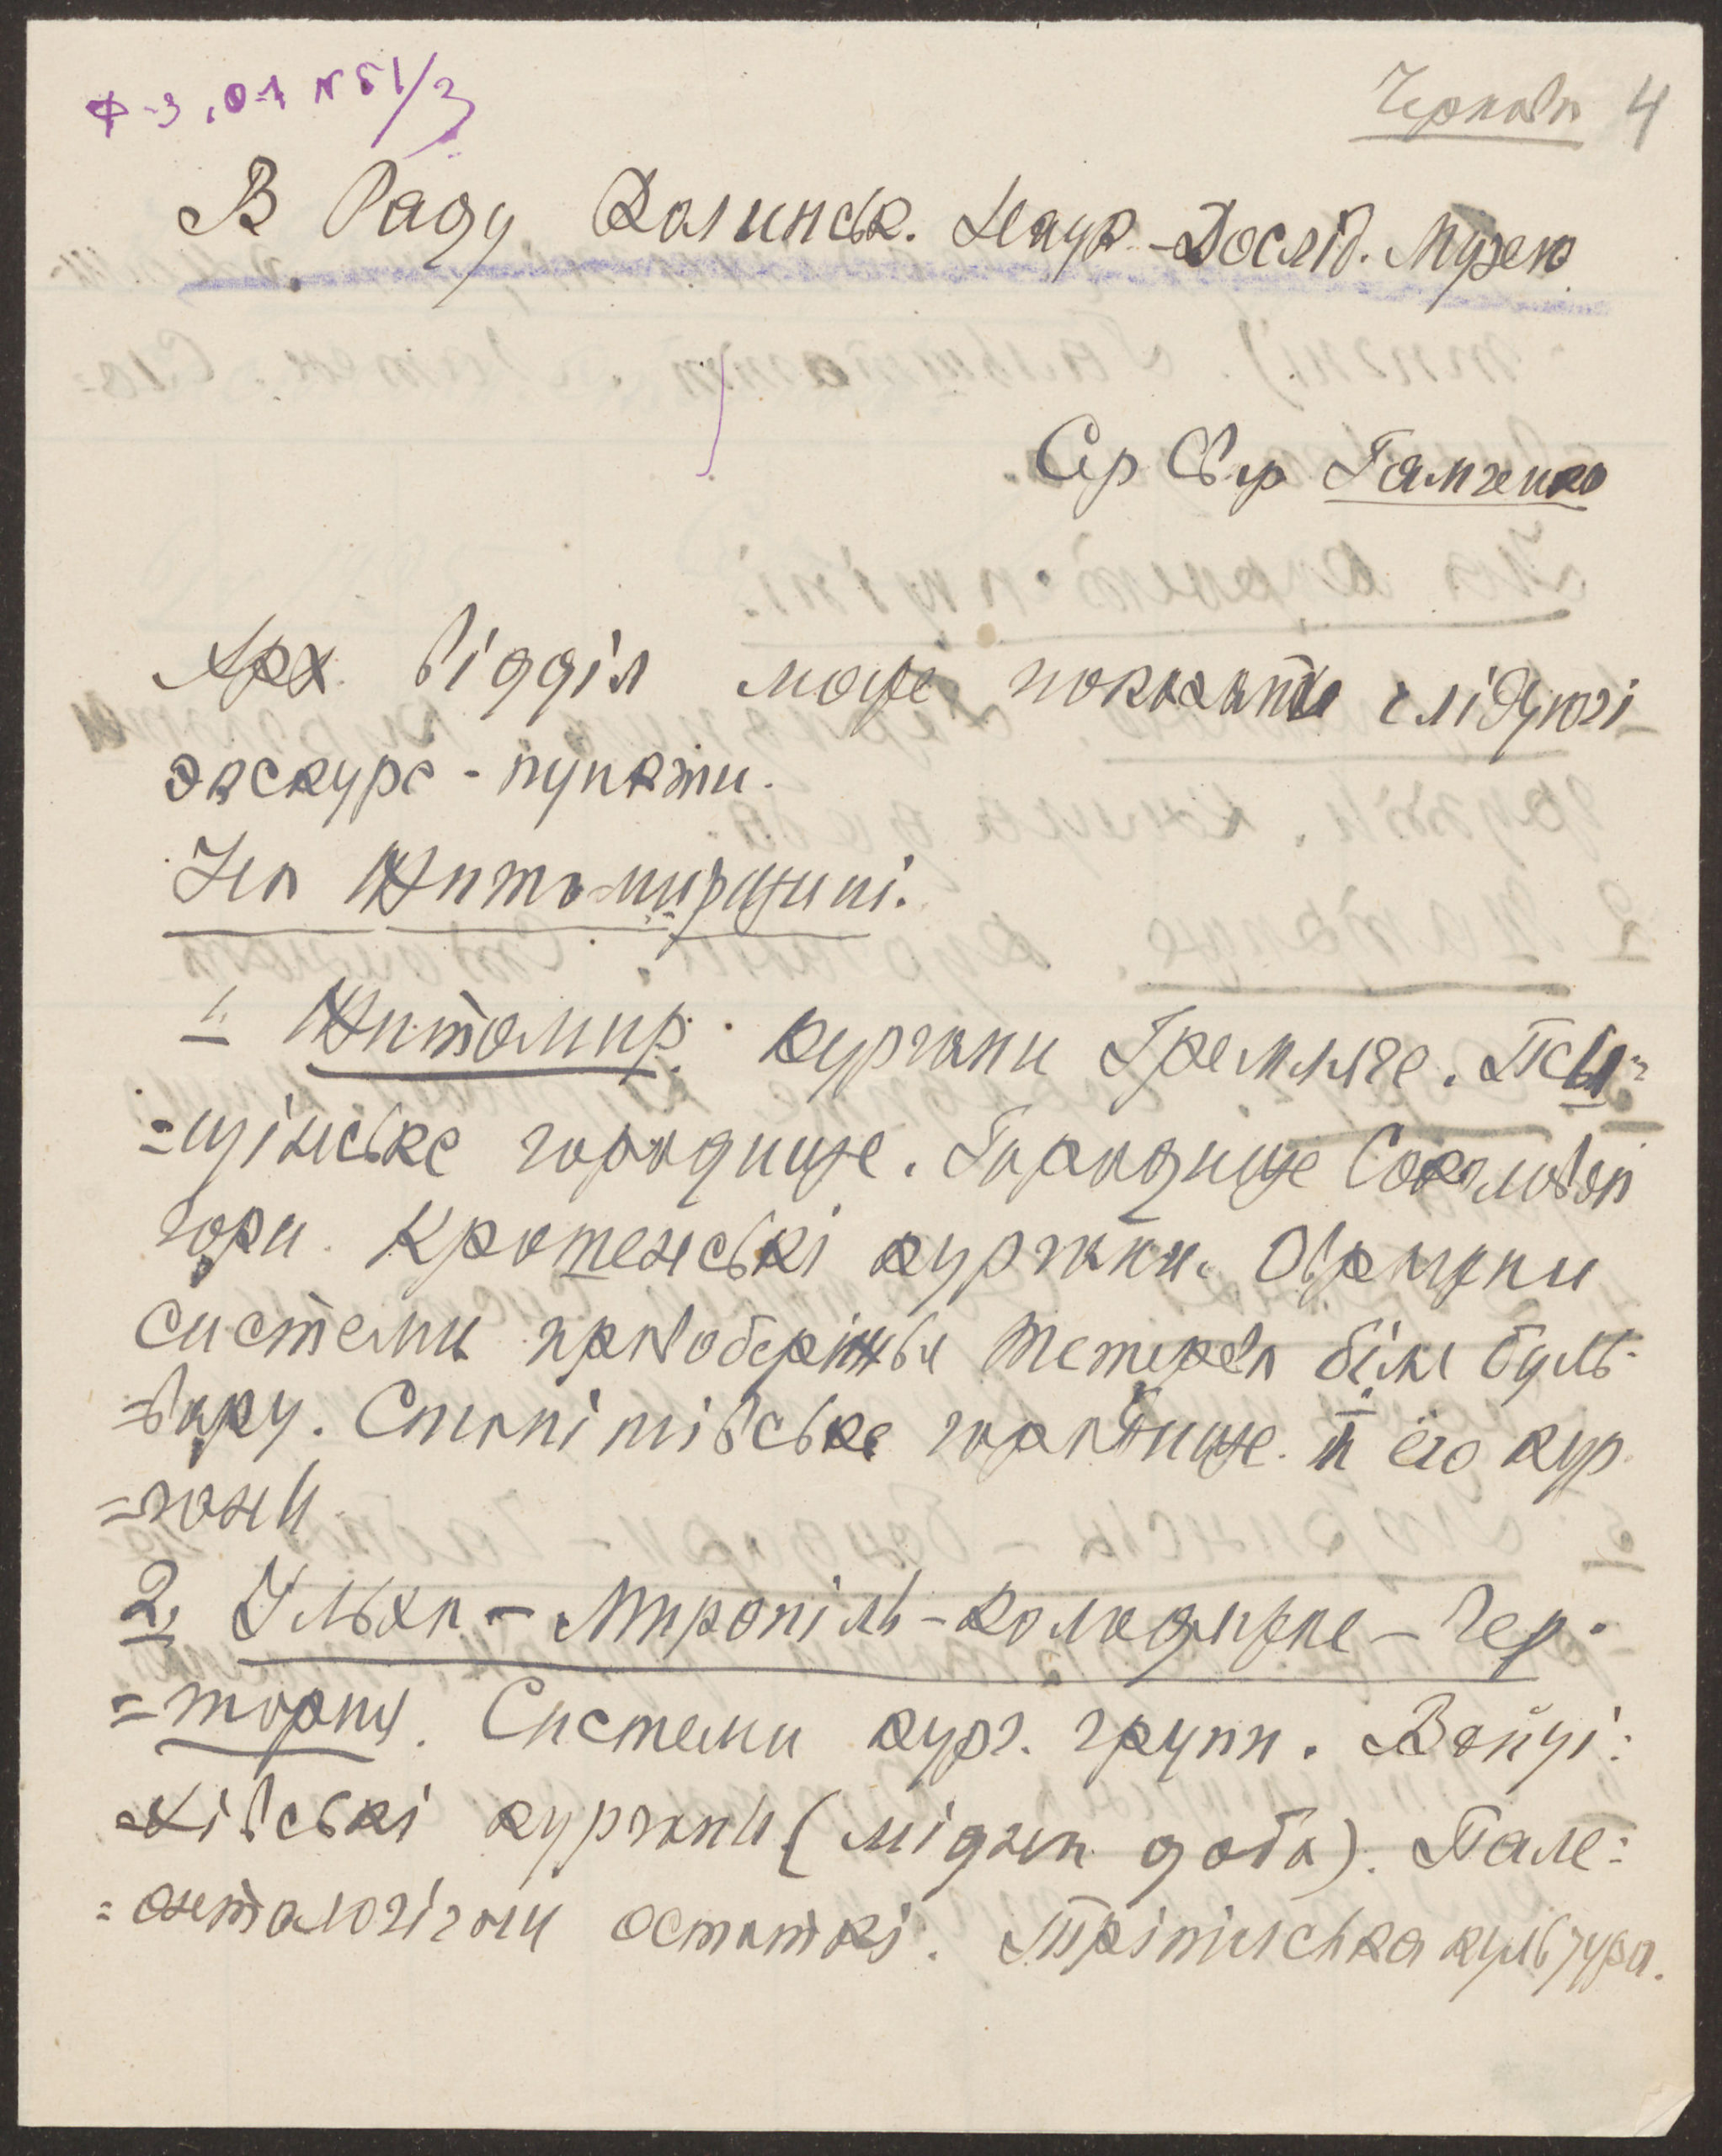 Ф-3, О-1 № 51/3
Чернова 4
В Раду Волинськ. Наук.-Дослід. Музею
Сер Ів Гамченко
Арх. відділ може показати слідуючі
экскурс-пункти.
На Житомирщині.
1. Житомир. кургани Гремляче. Пси=
=щінське городище. Городище Соколовой
гори. Крошенські кургани. Овражки
системи правобережья Тетерева біля буль=
=вару. Станішівське городище й єго кур
=гани
2. Ульха - Миропіль - Колодяжне - Чер=
=тория. Системи кург. групп. Войці=
=хівські кургани (мідяна доба). Пале=
=онтологічни остатки. Тріпільська культура.